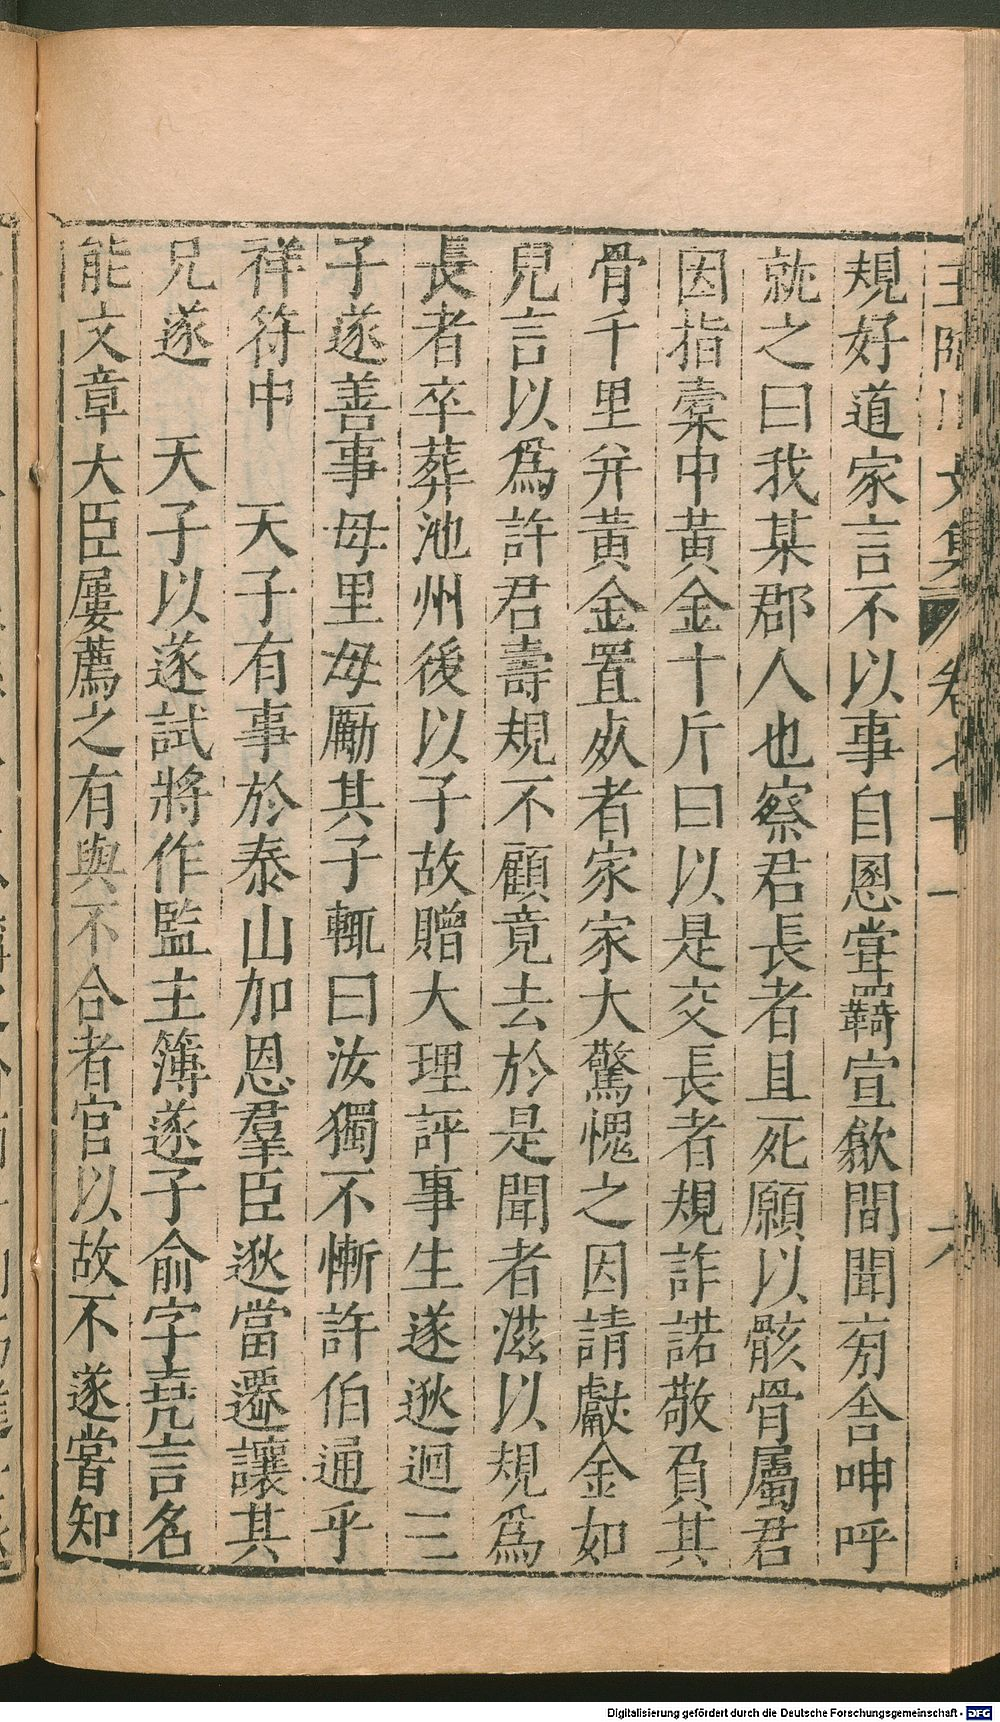 王臨川文集 卷七十一 六
規好道家言不以事自恩嘗羇宣歙間聞旁舍呻呼
就之曰我某郡人也察君長者且死願以骸骨屬君
因指橐中黃金十斤曰以是交長者規許諾敬負其
骨千里并黃金置死者家家大驚愧之因請獻金如
兒言以為許君壽規不顧竟去於是聞者滋以規為
長者卒葬池州後以子故贈大理評事生遂逖迴三
子遂善事母里母勵其子輒曰汝獨不慚許伯通乎
祥符中　天子有事於泰山加恩羣臣逖當遷讓其
兄遂　天子以遂試將作監主簿遂子俞字堯言名
能文章大臣屢薦之有與不合者官以故不遂嘗知
Digitalisierung gefördert durch die Deutsche Forschungsgemeinschaft - DFG